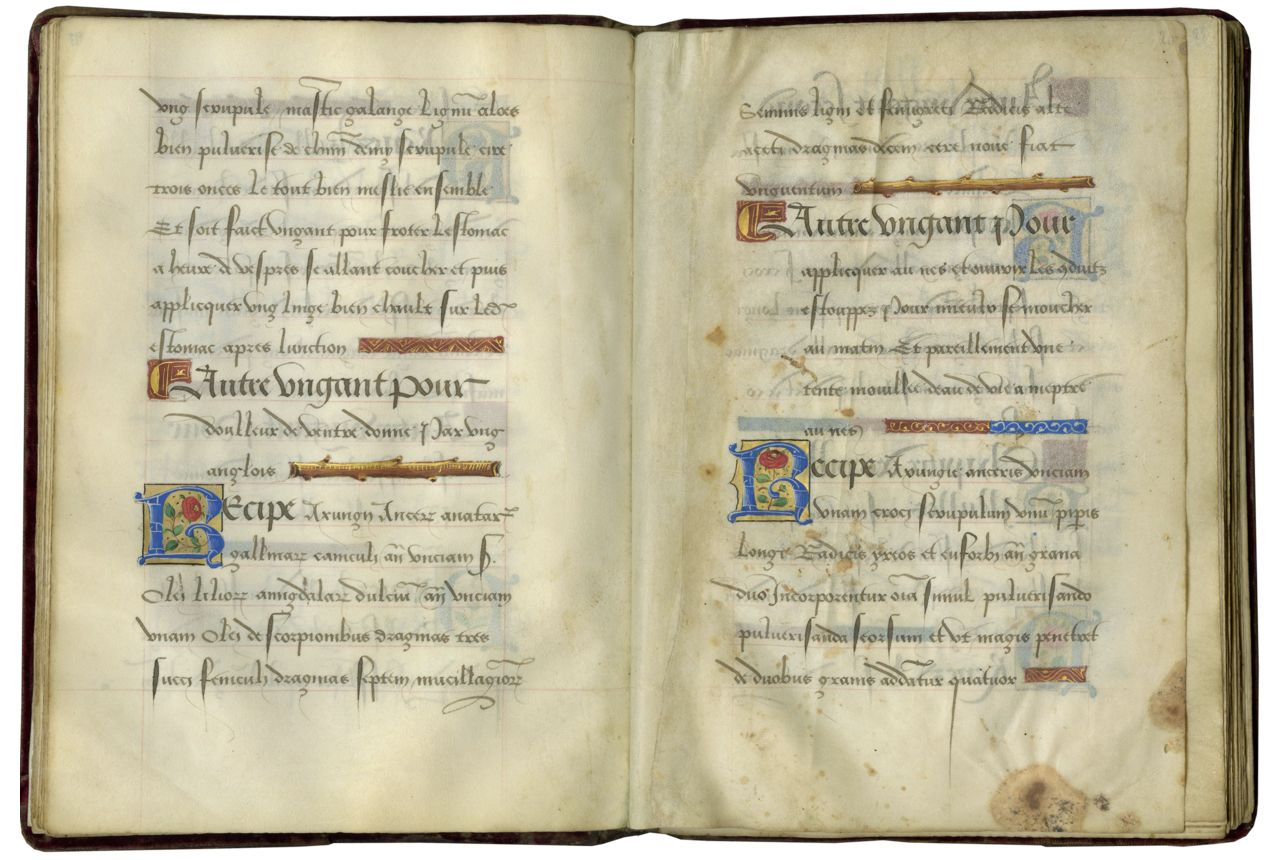 vng scrupule mastic galange lignu aloes
bien pulverise de chun demy scrupule cire
trois onces le tout bien meslie ensemble
Et soit faict vngant pour froter lestomac
a heure de vespres se allant coucher et puis
applicquer vng linge bien chault sur led
estomac apres lunction
Autre vngant pour
doulleur de ventre donne par vng
anglois
Recipe Axungie Ancere anatar
gallinar caniculi an vnciam
Olei amigdalar dulciu an vnciam
vnam Olei de scorpionibus dragmas tres
succi feniculi dragmas septem mucillagior
Seminis ligni et fenigreci Radicis alte
aceti dragmas decem cere noue fiat
vnguentum
Autre vngant pour
applicquer au nes et ouvrir les 9duitz
estouppez pour mieulx se moucher
au matin Et pareillement vne
tente mouillee deau de vie a meptre
au nes
Recipe Axungie anceris vnciam
vnam croci scrupulum vnu piperis
longe Radicis yreos et euforbi an grana
duo Incorporentur oia simul pulverisando
pulverisanda seorsum et vt magis penetret
de duobus granis addatur quatuor